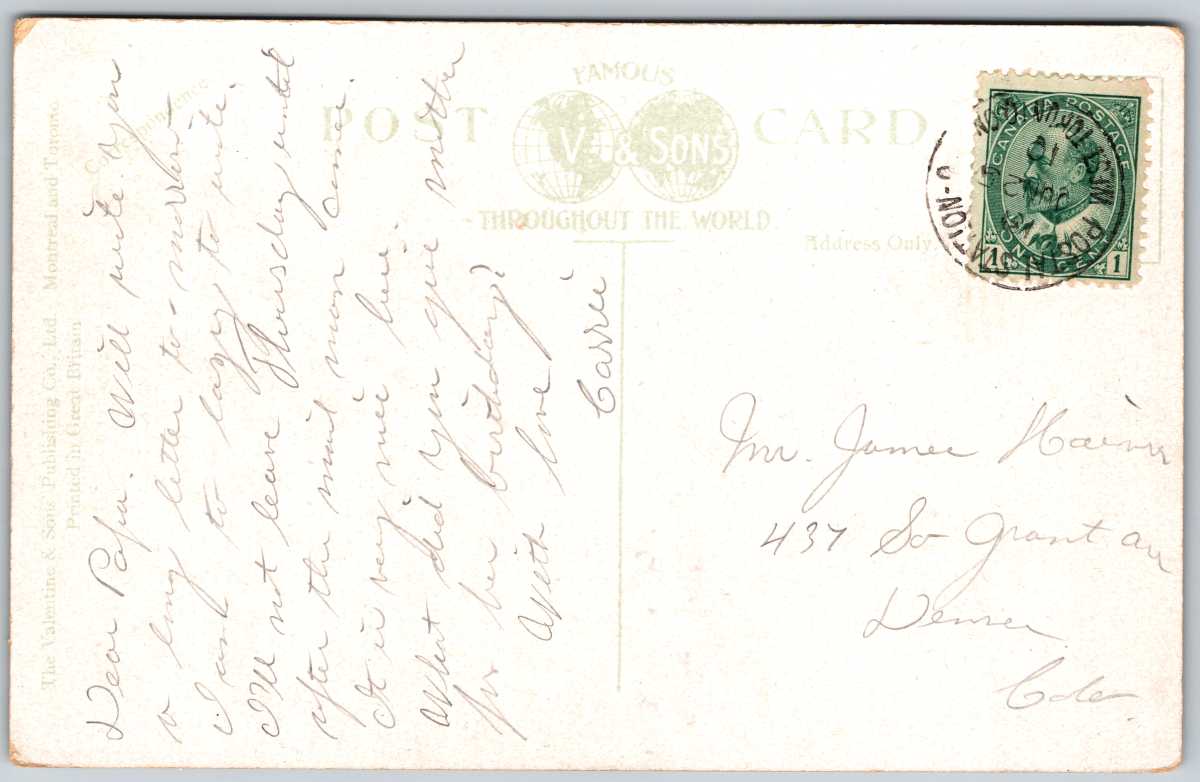 The Valentine & Sons Publishing Co., Ltd. Montreal and Toronto
Printed in Great Britain
Correspondence
FAMOUS
POST CARD
V. & SONS
THROUGHOUT THE WORLD
Address Only.
CANADA POSTAGE
1 ONE CENT 1
Dear Papa. Will write you
a long letter to-morrow
I am to lazy to write.
I'll not leave Thursday until
after the mail man came.
It is very nice here.
What did you give mother
for her birthday?
With love
Carrie
Mr. James
437 So Grant av
Denver
Colo